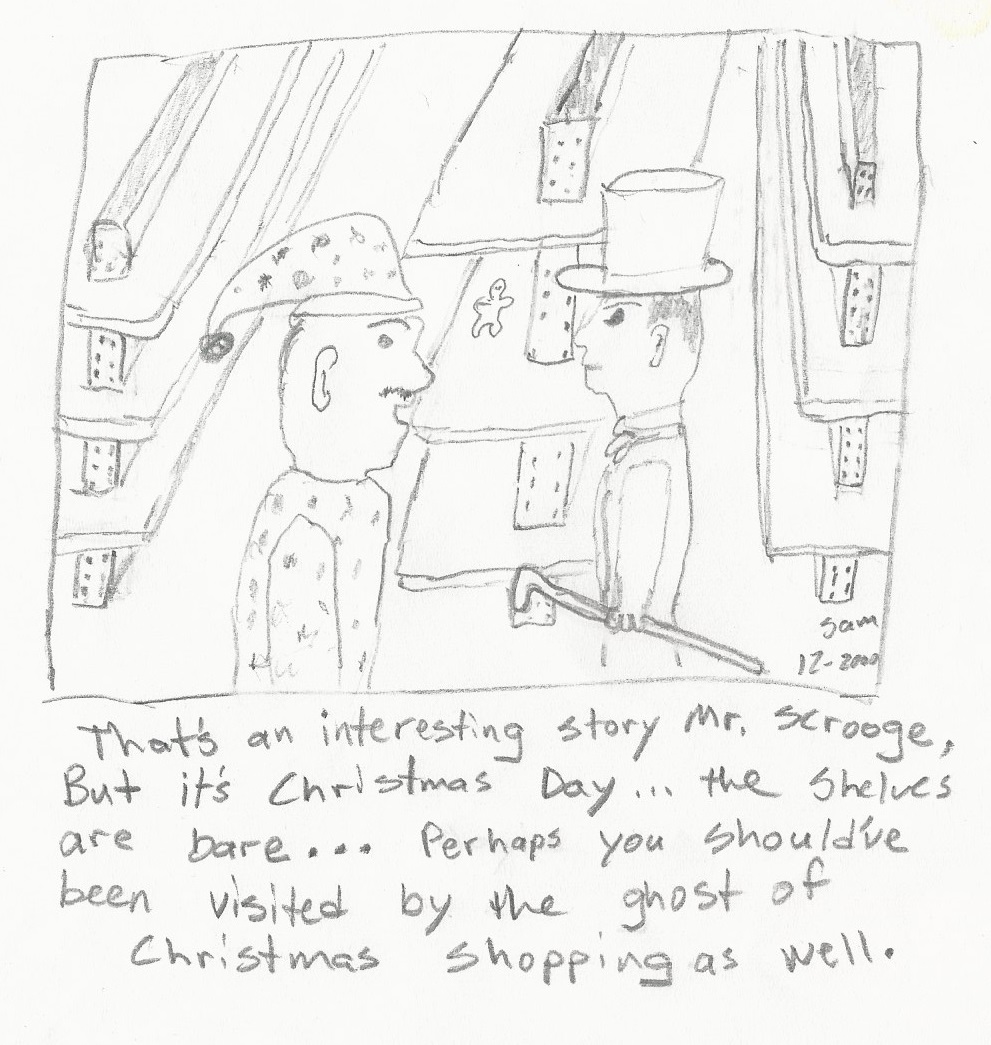 Sam
12-2000
That's an interesting story Mr. Scrooge,
But it's Christmas Day... the Shelves
are bare... Perhaps you should've
been visited by the ghost of
Christmas shopping as well.